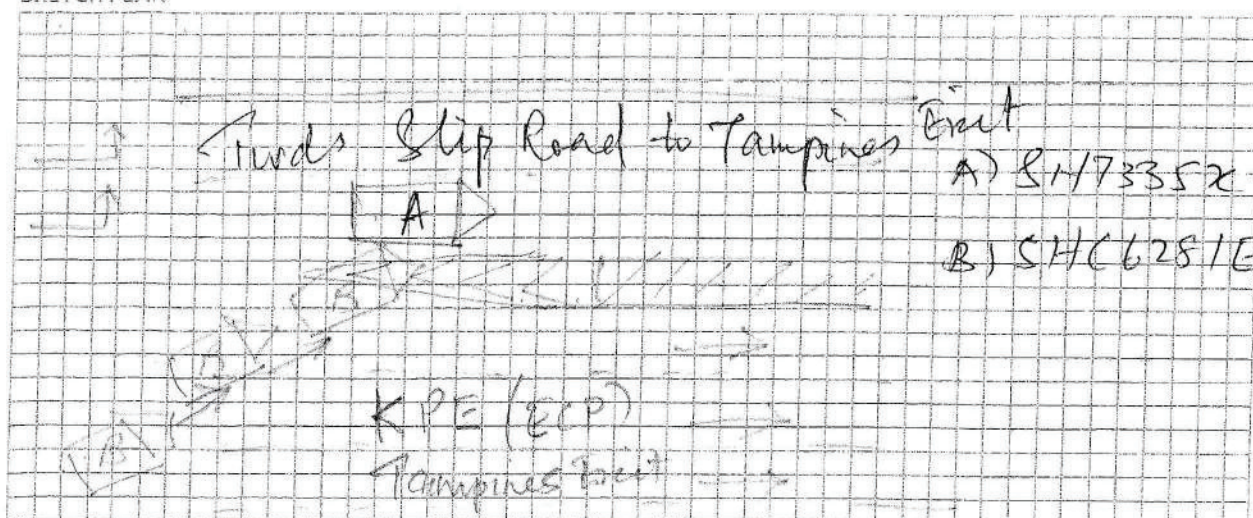 SKETCH PLAN
Twds Slip Road to Tampines Exit
A) SH7335X
A
B) SHC6281E
B
B
KPE (ECP)
B
Tampines Exit